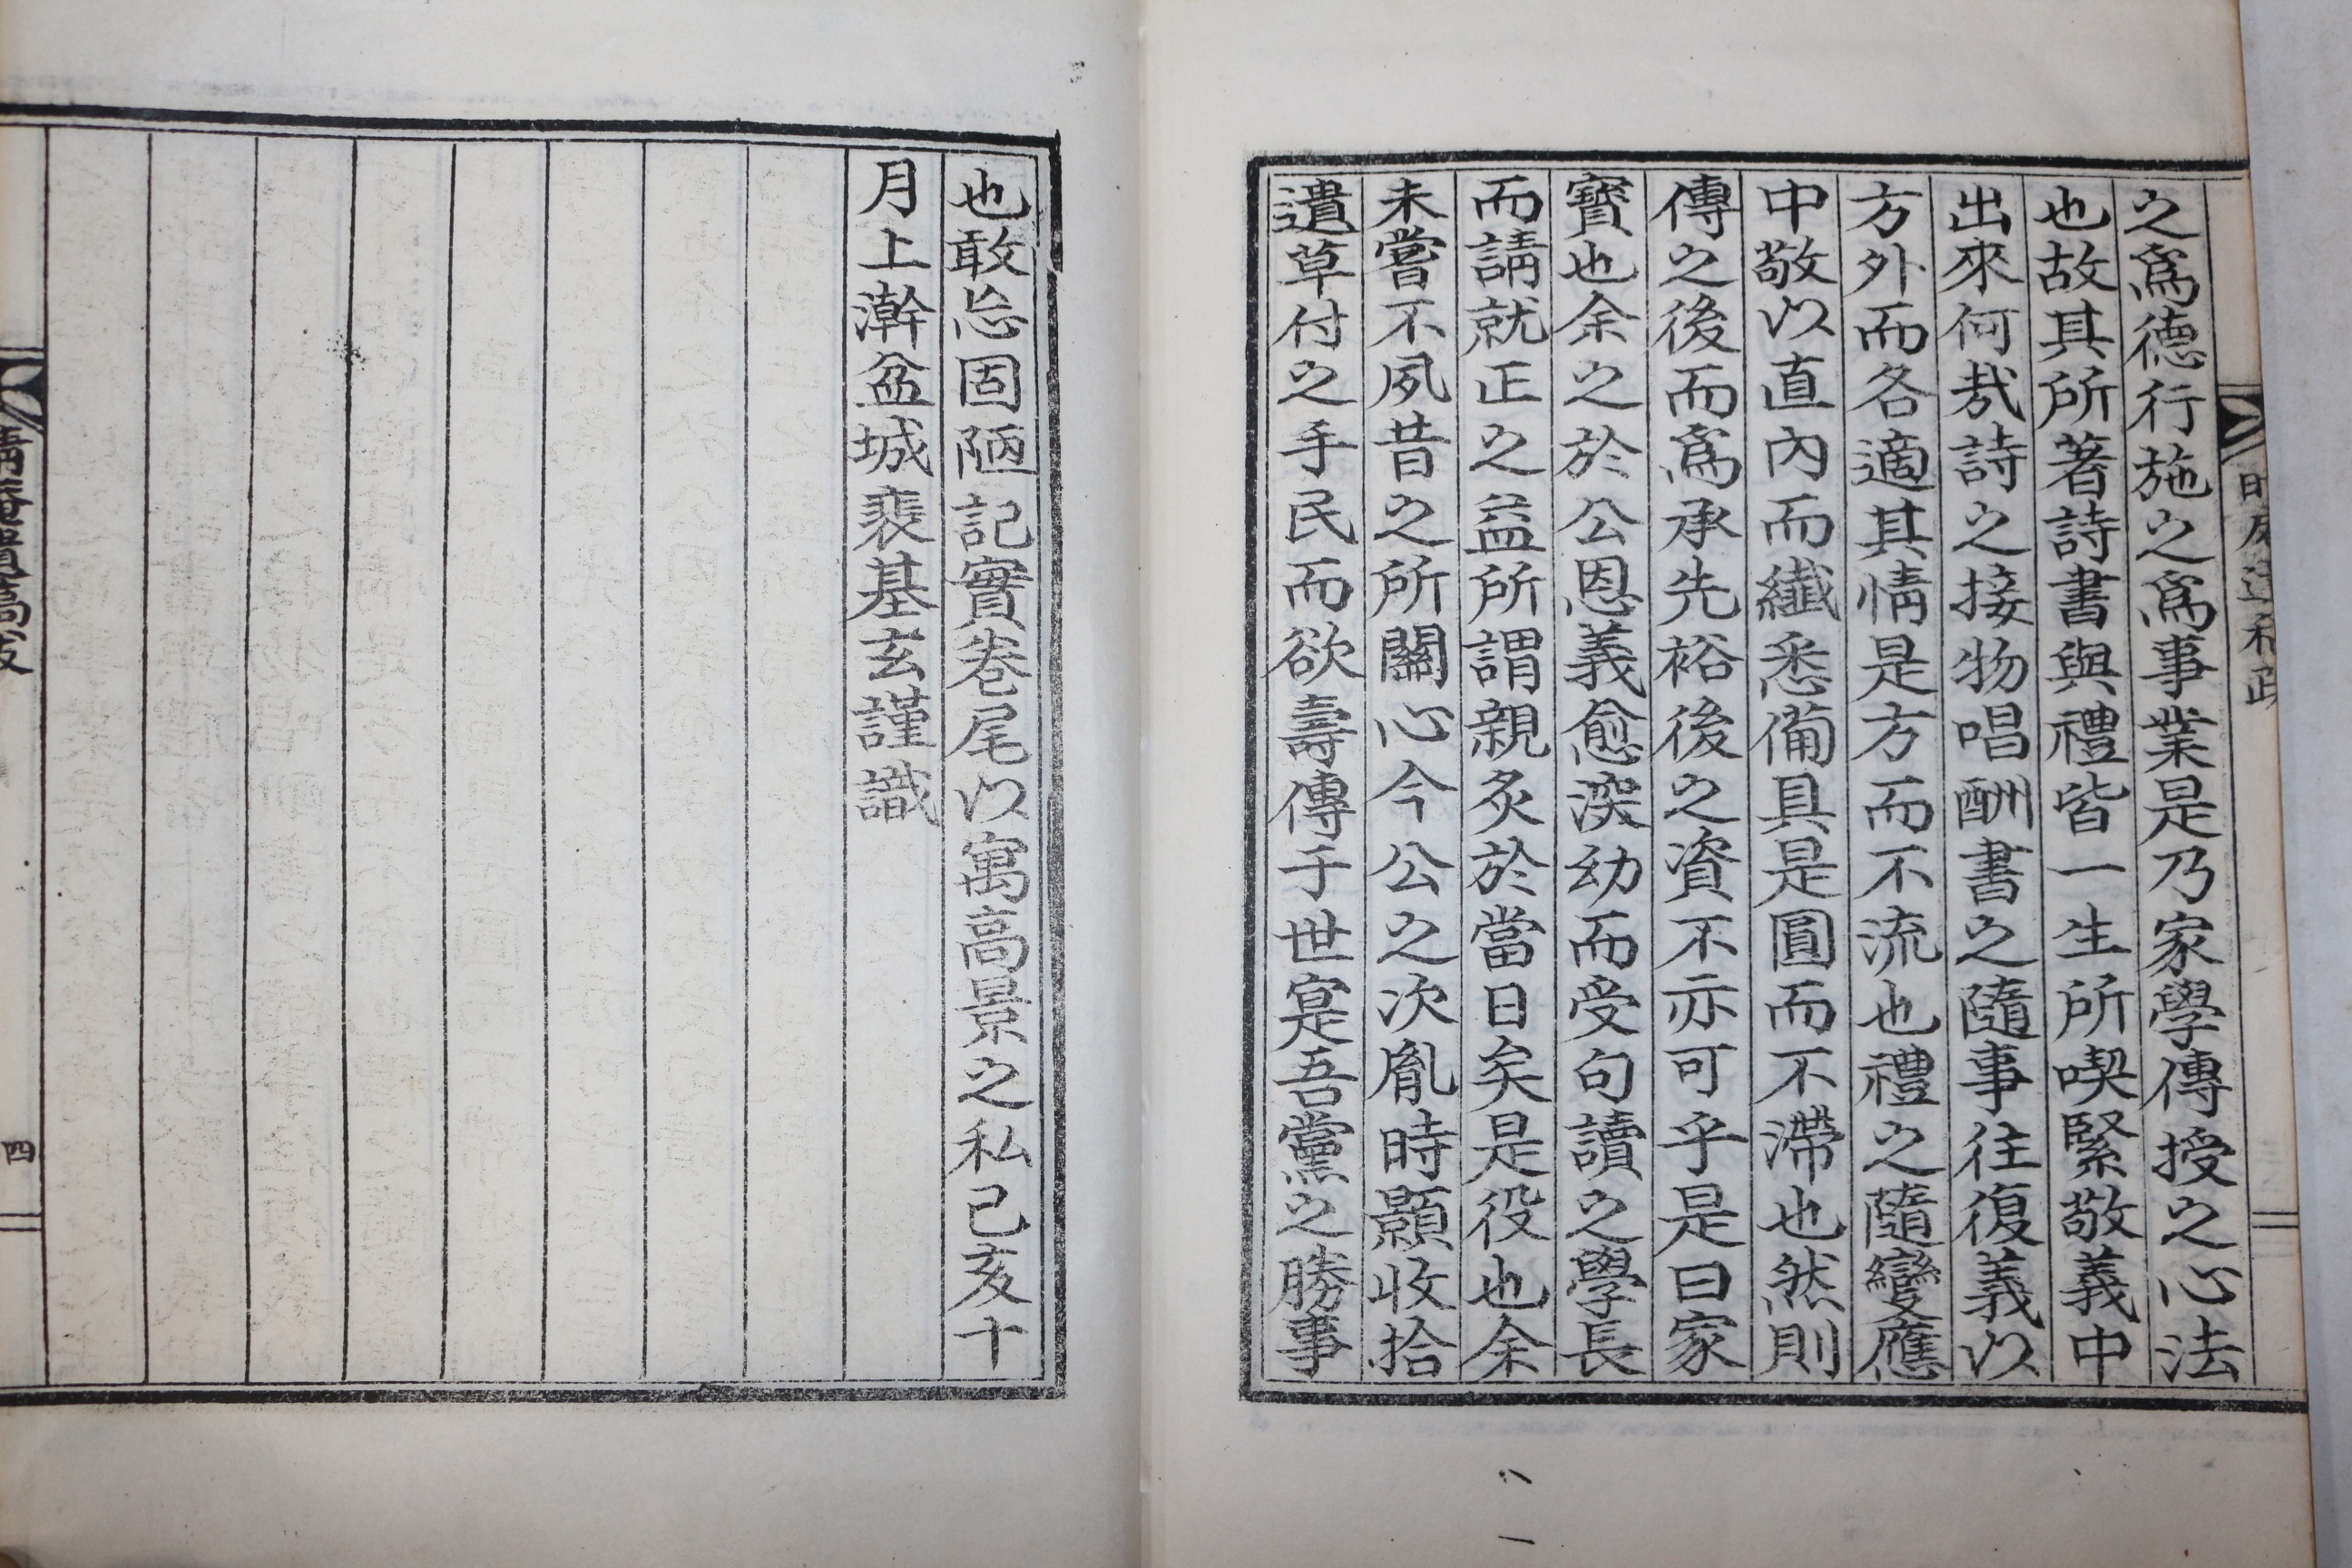 之爲德行施之爲事業是乃家學傳授之心法
也故其所著詩書與禮皆一生所喫緊敬義中
出來何哉詩之接物唱酬書之隨事往復義以
方外而各適其情是方而不流也禮之隨變應
中敬以直內而纖悉備具是圓而不滯也然則
傳之後而爲承先裕後之資不亦可乎是曰家
寶也余之於公恩義愈深幼而受句讀之學長
而請就正之益所謂親炙於當日矣是役也余
未嘗不夙昔之所關心今公之次胤時顯收拾
遺草付之手民而欲壽傳于世寔吾黨之勝事
也敢忘固陋記實卷尾以寓高景之私己亥十
月上澣盆城裵基玄謹識
遺稿跋
四